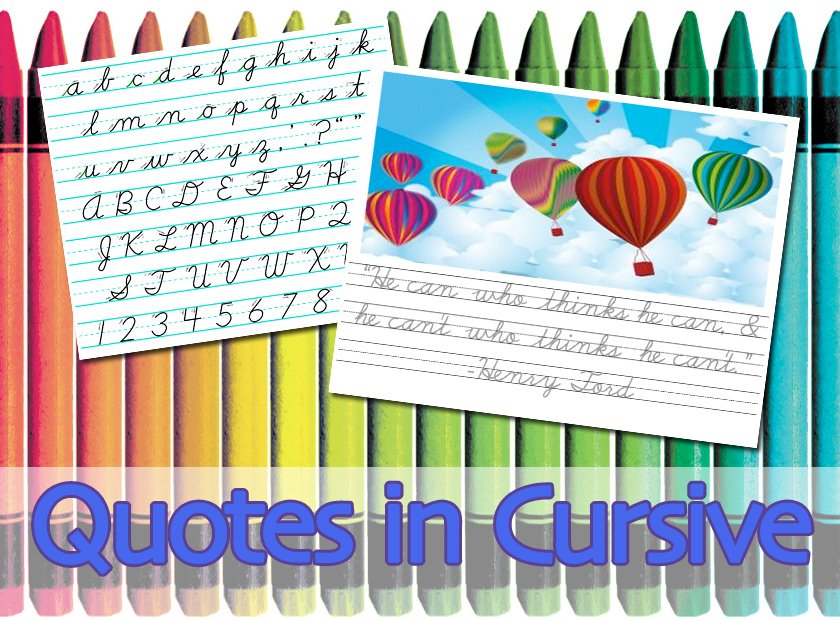 a b c d e f g h i j k
l m n o p q r s t
u v w x y z . ' . ? “ ”
A B C D E F G H
J K L M N O P Q
S T U V W X Y
1 2 3 4 5 6 7 8
“He can who thinks he can, &
he can't who thinks he can't.”
-Henry Ford
Quotes in Cursive